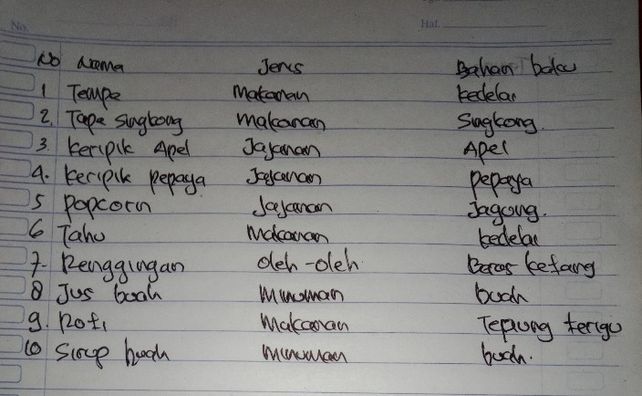 No. Hal.
No Nama Jenis Bahan baku
1 Tempe Makanan kedelai
2. Tape Singkong Makanan Singkong.
3. keripik Apel Jajanan Apel
4. keripik pepaya Jajanan pepaya
5 popcorn Jajanan Jagung.
6 Tahu Makanan kedelai
7. Rengginan oleh-oleh. Beras ketang
8 Jus buah Minuman buah
9. Roti Makanan Tepung terigu
10 Sirup buah Minuman buah.